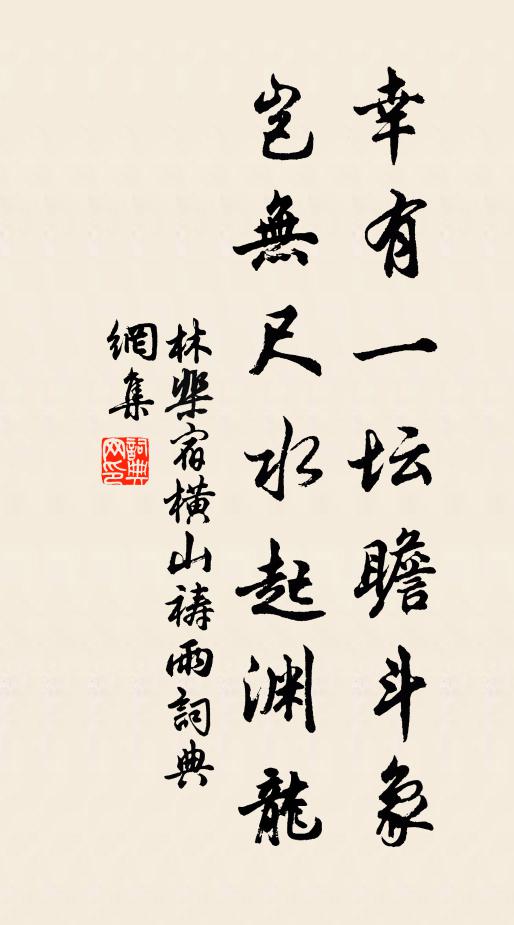 幸有一坛瞻斗象
岂無尺水起渊龍
林槩宿横山祷雨詞典
網集
詞典網印